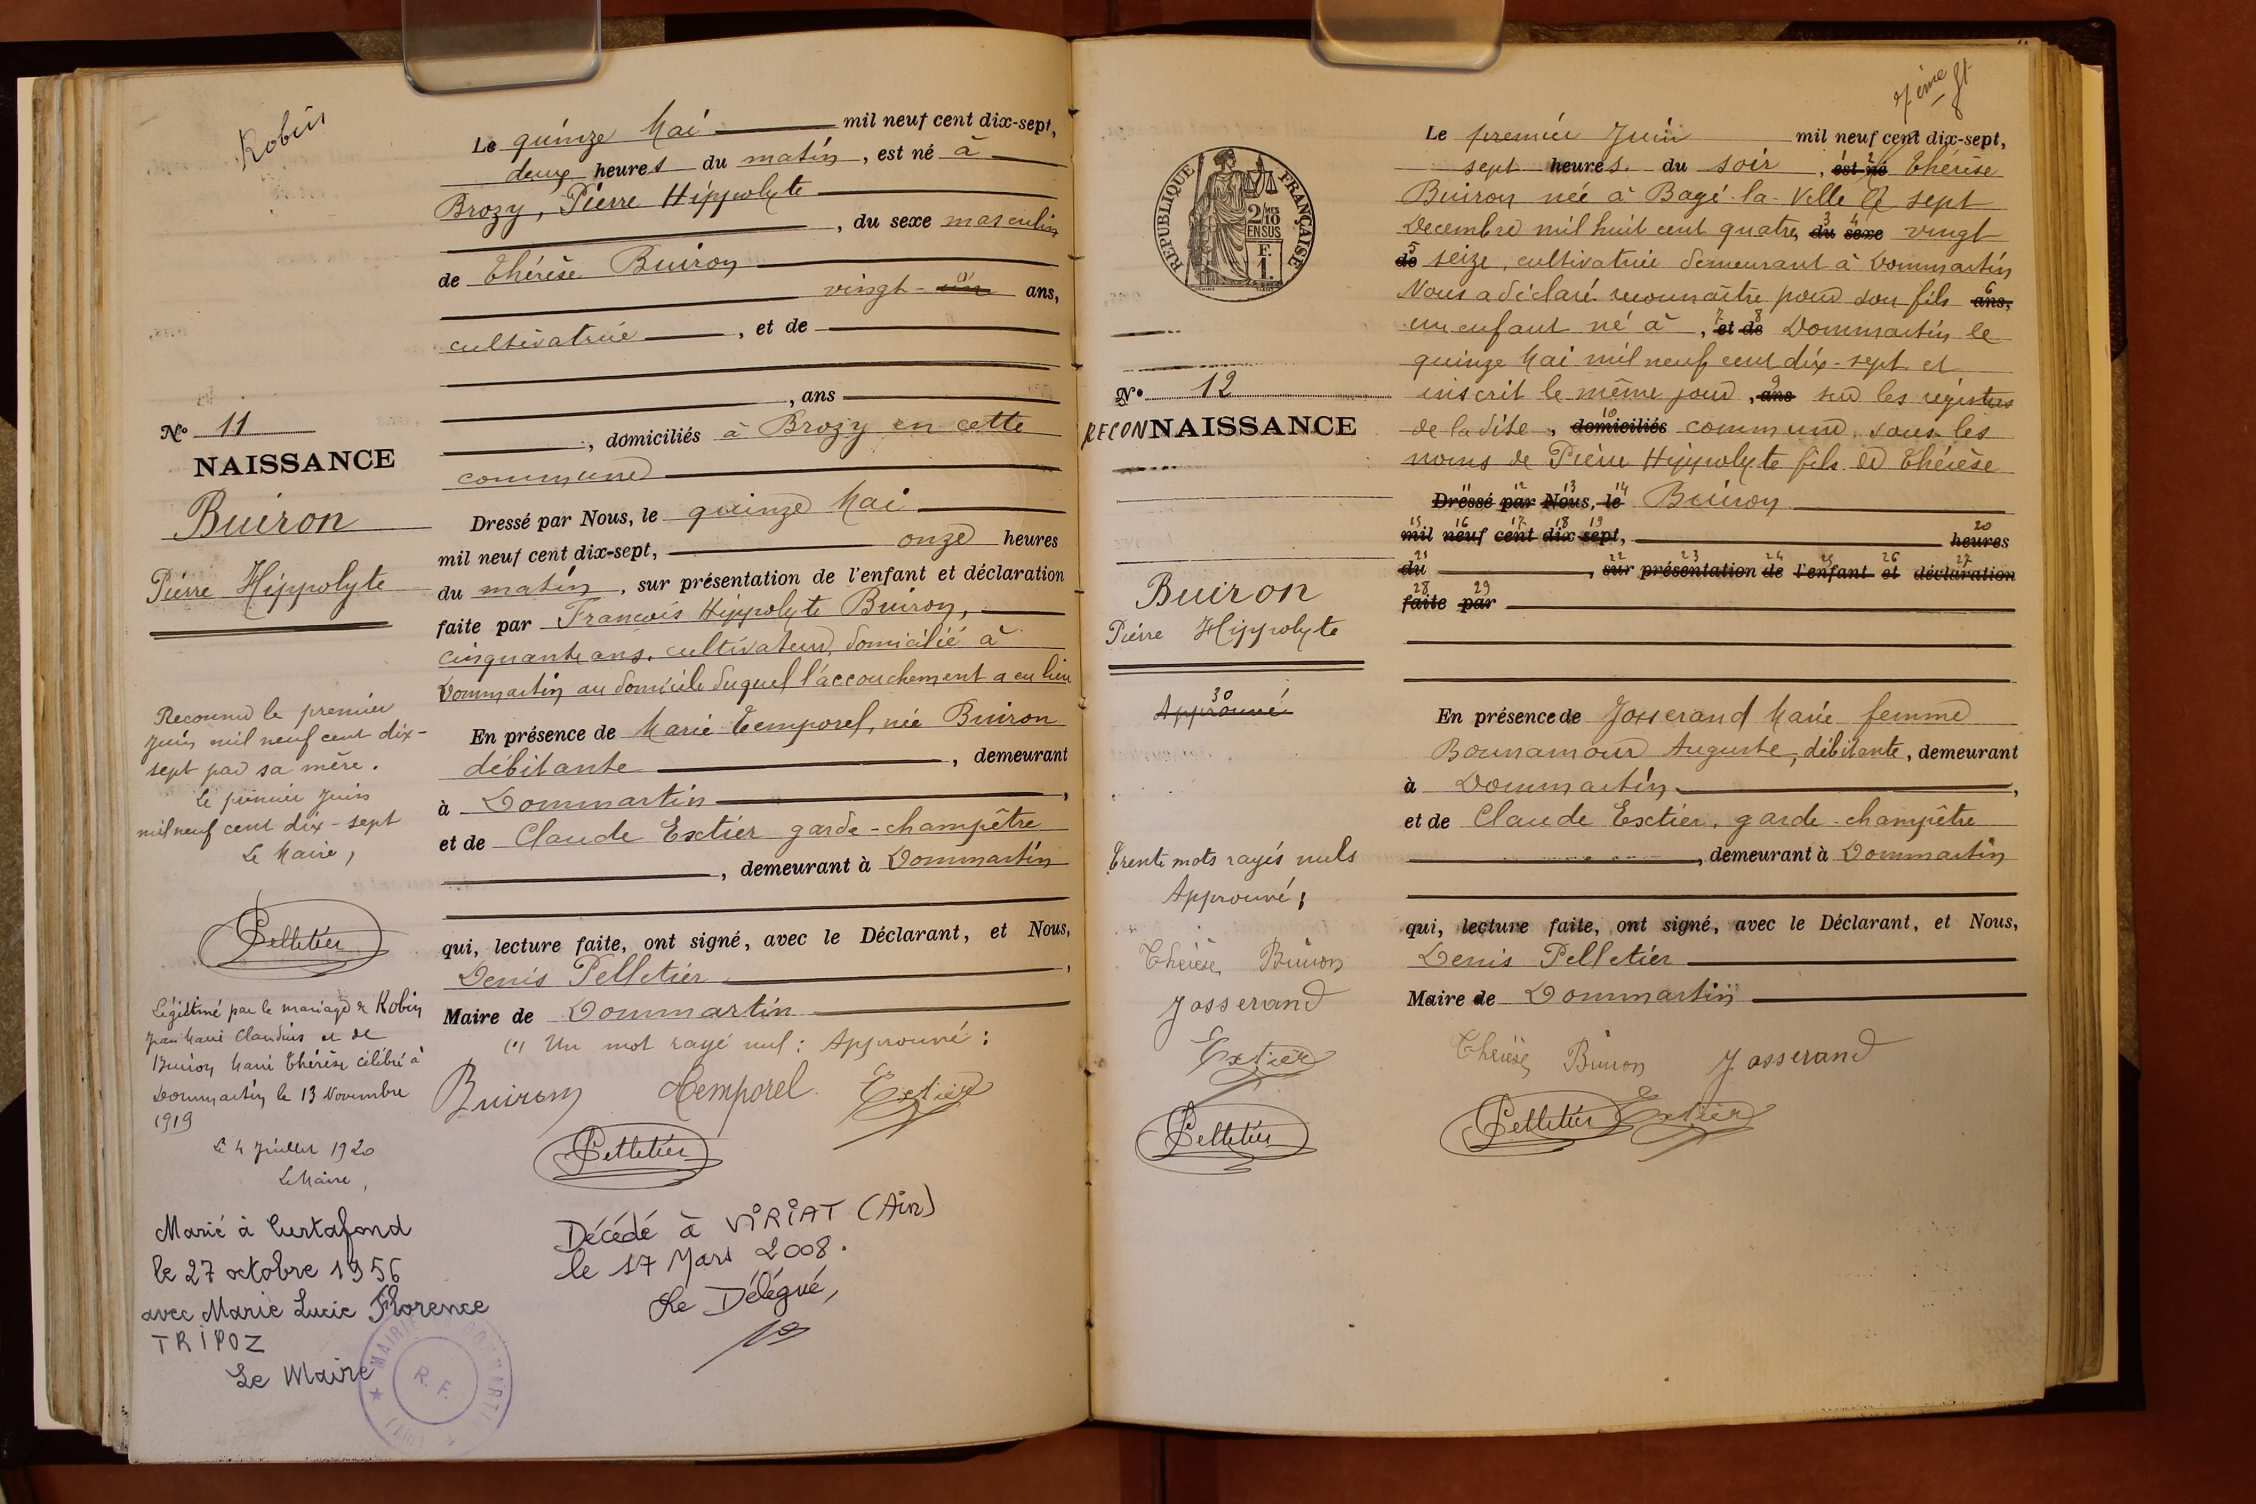 Robin
Le quinze Mai mil neuf cent dix-sept,
deux heures du matin, est né à
Brozy, Pierre Hippolyte
, du sexe masculin
de Thérèse Buiron
vingt - ans,
cultivatrice, et de
, ans
, domiciliés à Brozy en cette
commune
Dressé par Nous, le quinze Mai
mil neuf cent dix-sept, onze heures
du matin, sur présentation de l'enfant et déclaration
faite par François Hippolyte Buiron,
cinquante ans, cultivateur, domicilié à
Dommartin au domicile duquel l'accouchement a eu lieu
En présence de Marie Temporel, née Buiron
débitante, demeurant
à Dommartin,
et de Claude Extier garde-champêtre
, demeurant à Dommartin
qui, lecture faite, ont signé, avec le Déclarant, et Nous,
Denis Pelletier,
Maire de Dommartin
(1) Un mot rayé nul : Approuvé :
Buiron Temporel Extier
Pelletier
Décédé à VIRIAT (Ain)
le 17 Mars 2008.
Le Délégué,
N° 11
NAISSANCE
Buiron
Pierre Hippolyte
Reconnu le premier
Juin mil neuf cent dix-
sept par sa mère.
Le premier Juin
mil neuf cent dix-sept
Le Maire,
Pelletier
Légitimé par le mariage de Robin
Jean Marie Claudius et de
Buiron Marie Thérèse célébré à
Dommartin le 13 Novembre
1919
Le 4 Juillet 1920
Le Maire,
Marié à Curtafond
le 27 octobre 1956
avec Marie Lucie Florence
TRIPOZ
Le Maire
MAIRIE
R. F.
7ème ft
RÉPUBLIQUE FRANÇAISE
2/10 MES
EN SUS
F.
1.
N° 12
RECONNAISSANCE
Buiron
Pierre Hippolyte
30
Approuvé
Trente mots rayés nuls
Approuvé :
Thérèse Buiron
Josserand
Extier
Pelletier
Le premier Juin mil neuf cent dix-sept,
sept heures du soir, est né Thérèse
Buiron née à Bagé-la-Ville le sept
Decembre mil huit cent quatre du sexe vingt
de seize, cultivatrice demeurant à Dommartin
Nous a déclaré reconnaître pour son fils ans,
un enfant né à, et de Dommartin le
quinze Mai mil neuf cent dix-sept et
inscrit le même jour, ans sur les régistres
de ladite, domiciliés commune, sous les
noms de Pierre Hippolyte fils de Thérèse
Dressé par Nous, le Buiron
mil neuf cent dix sept, heures
du, sur présentation de l'enfant et déclaration
faite par
En présence de Josserand Marie femme
Bounamour Auguste, débitante, demeurant
à Dommartin,
et de Claude Extier, garde-champêtre
, demeurant à Dommartin
qui, lecture faite, ont signé, avec le Déclarant, et Nous,
Denis Pelletier
Maire de Dommartin
Thérèse Buiron Josserand
Pelletier Extier